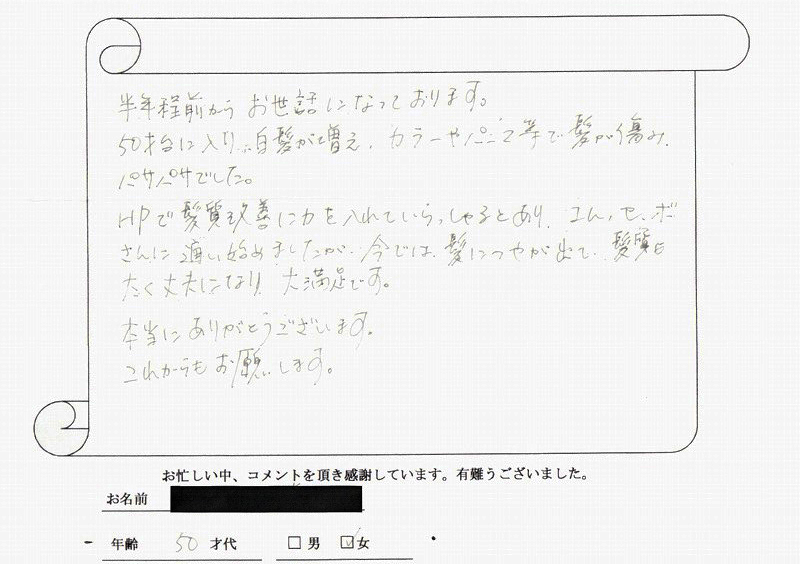 半年程前から お世話になっております。
50才台に入り、白髪が増え、カラーやパーマ等で髪が傷み、
パサパサでした。
HPで髪質改善に力を入れていらっしゃるとあり、
さんに通い始めましたが、今では、髪につやが出て、髪質も
大丈夫になり、大満足です。
本当にありがとうございます。
これからもお願いします。
お忙しい中、コメントを頂き感謝しています。有難うございました。
お名前
年齢 50 才代 □ 男 ☑ 女